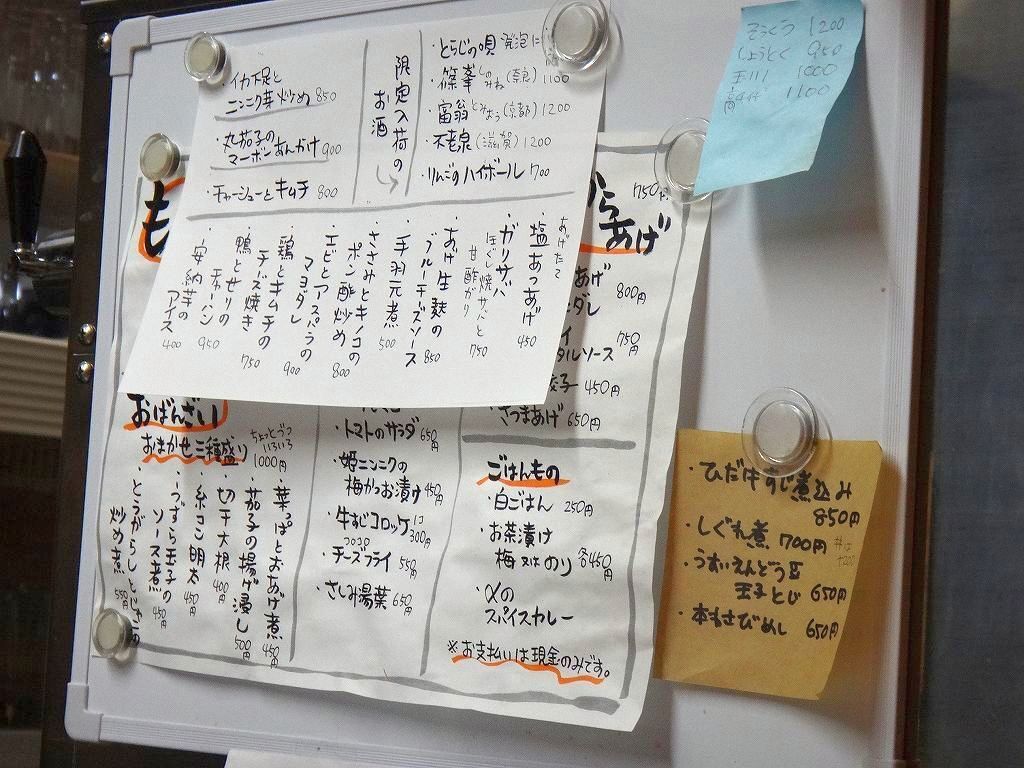 ・イカ下足と
ニンニク芽炒め 850
・丸茄子の
マーボーあんかけ 900
・チャーシューとキムチ 800
限定入荷の
お酒
・とらじの唄 発泡に
・篠峯 しのみね (奈良) 1100
・富翁 とみおう (京都) 1200
・不老泉 (滋賀) 1200
・りんごのハイボール 700
あげたて
・塩あつあげ 450
・ガリサバ
ほぐし焼サバと
甘酢ガリ 750
・あげ生麩の
ブルーチーズソース 850
・手羽元煮 500
・ささみとキノコの
ポン酢炒め 800
・エビとアスパラの
マヨダレ 900
・鶏とキムチの
チーズ焼き 750
・鴨とセリの
チャーハン 950
・安納芋の
アイス 400
ぞっこう 1200
しょうとく 950
玉川 1000
1100
も
からあげ
750円
あげ
ダレ 800円
イ
タルソース 750円
餃子 450円
・さつまあげ 650円
おばんざい
おまかせ三種盛り ちょっとづついろいろ 1000円
・葉っぱとおあげ煮 450円
・茄子の揚げ浸し 500円
・切干大根 400円
・糸こん明太 450円
・うずら玉子の
ソース煮 450円
・とうがらしとじゃこの
炒め煮 550円
・トマトのサラダ 650円
・姫ニンニクの
梅かつお漬け 450円
・牛すじコロッケ 300円
コロコロ
・チーズフライ 550円
・さしみ湯葉 650円
ごはんもの
・白ごはん 250円
・お茶漬け
梅又はのり 各450円
・〆の
スパイスカレー
※お支払いは現金のみです。
・ひだ牛すじ煮込み
850円
・しぐれ煮 700円
・うすいえんどう豆
玉子とじ 650円
・本わさびめし 650円